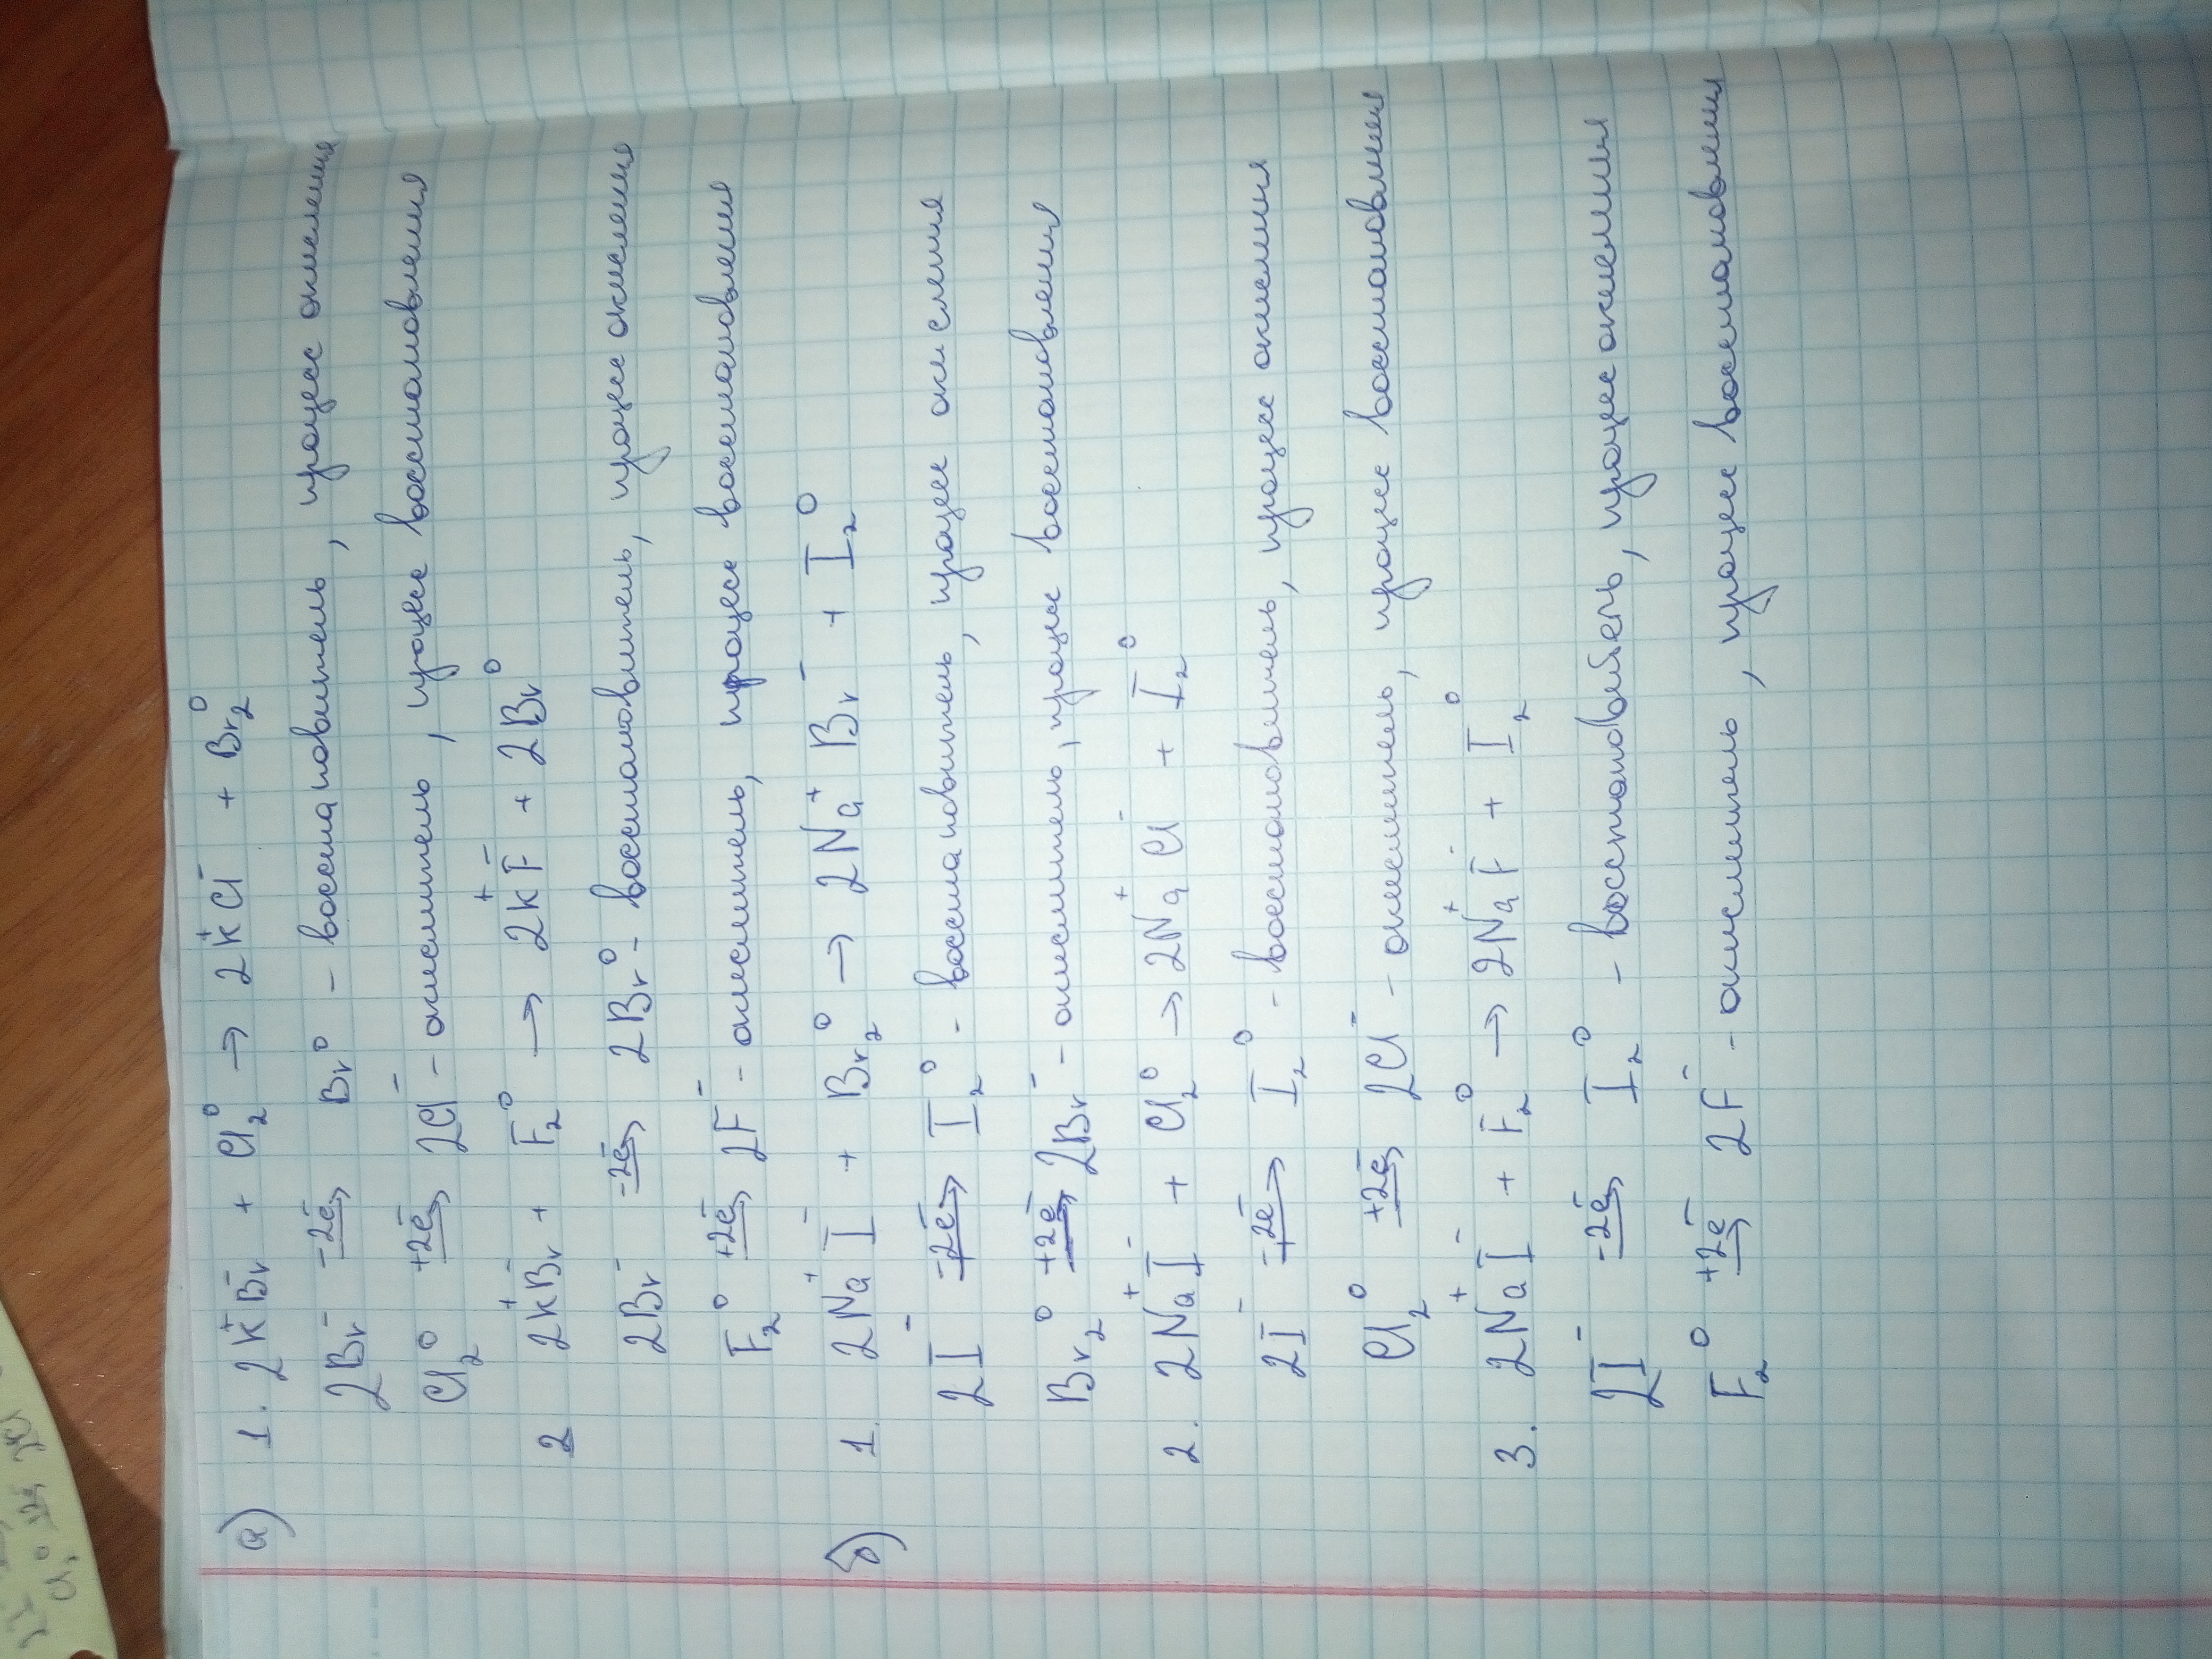 а) 1. 2K⁺Br⁻ + Cl₂⁰ → 2K⁺Cl⁻ + Br₂⁰
2Br⁻ -2e⁻→ Br⁰ - восстановитель, процесс окисления
Cl₂⁰ +2e⁻→ 2Cl⁻ - окислитель, процесс восстановления
2 2K⁺Br⁻ + F₂⁰ → 2K⁺F⁻ + 2Br⁰
2Br⁻ -2e⁻→ 2Br⁰ - восстановитель, процесс окисления
F₂⁰ +2e⁻→ 2F⁻ - окислитель, процесс восстановления
б) 1. 2Na⁺I⁻ + Br₂⁰ → 2Na⁺Br⁻ + I₂⁰
2I⁻ -2e⁻→ I₂⁰ - восстановитель, процесс окисления
Br₂⁰ +2e⁻→ 2Br⁻ - окислитель, процесс восстановления
2. 2Na⁺I⁻ + Cl₂⁰ → 2Na⁺Cl⁻ + I₂⁰
2I⁻ -2e⁻→ I₂⁰ - восстановитель, процесс окисления
Cl₂⁰ +2e⁻→ 2Cl⁻ - окислитель, процесс восстановления
3. 2Na⁺I⁻ + F₂⁰ → 2Na⁺F⁻ + I₂⁰
2I⁻ -2e⁻→ I₂⁰ - восстановитель, процесс окисления
F₂⁰ +2e⁻→ 2F⁻ - окислитель, процесс восстановления